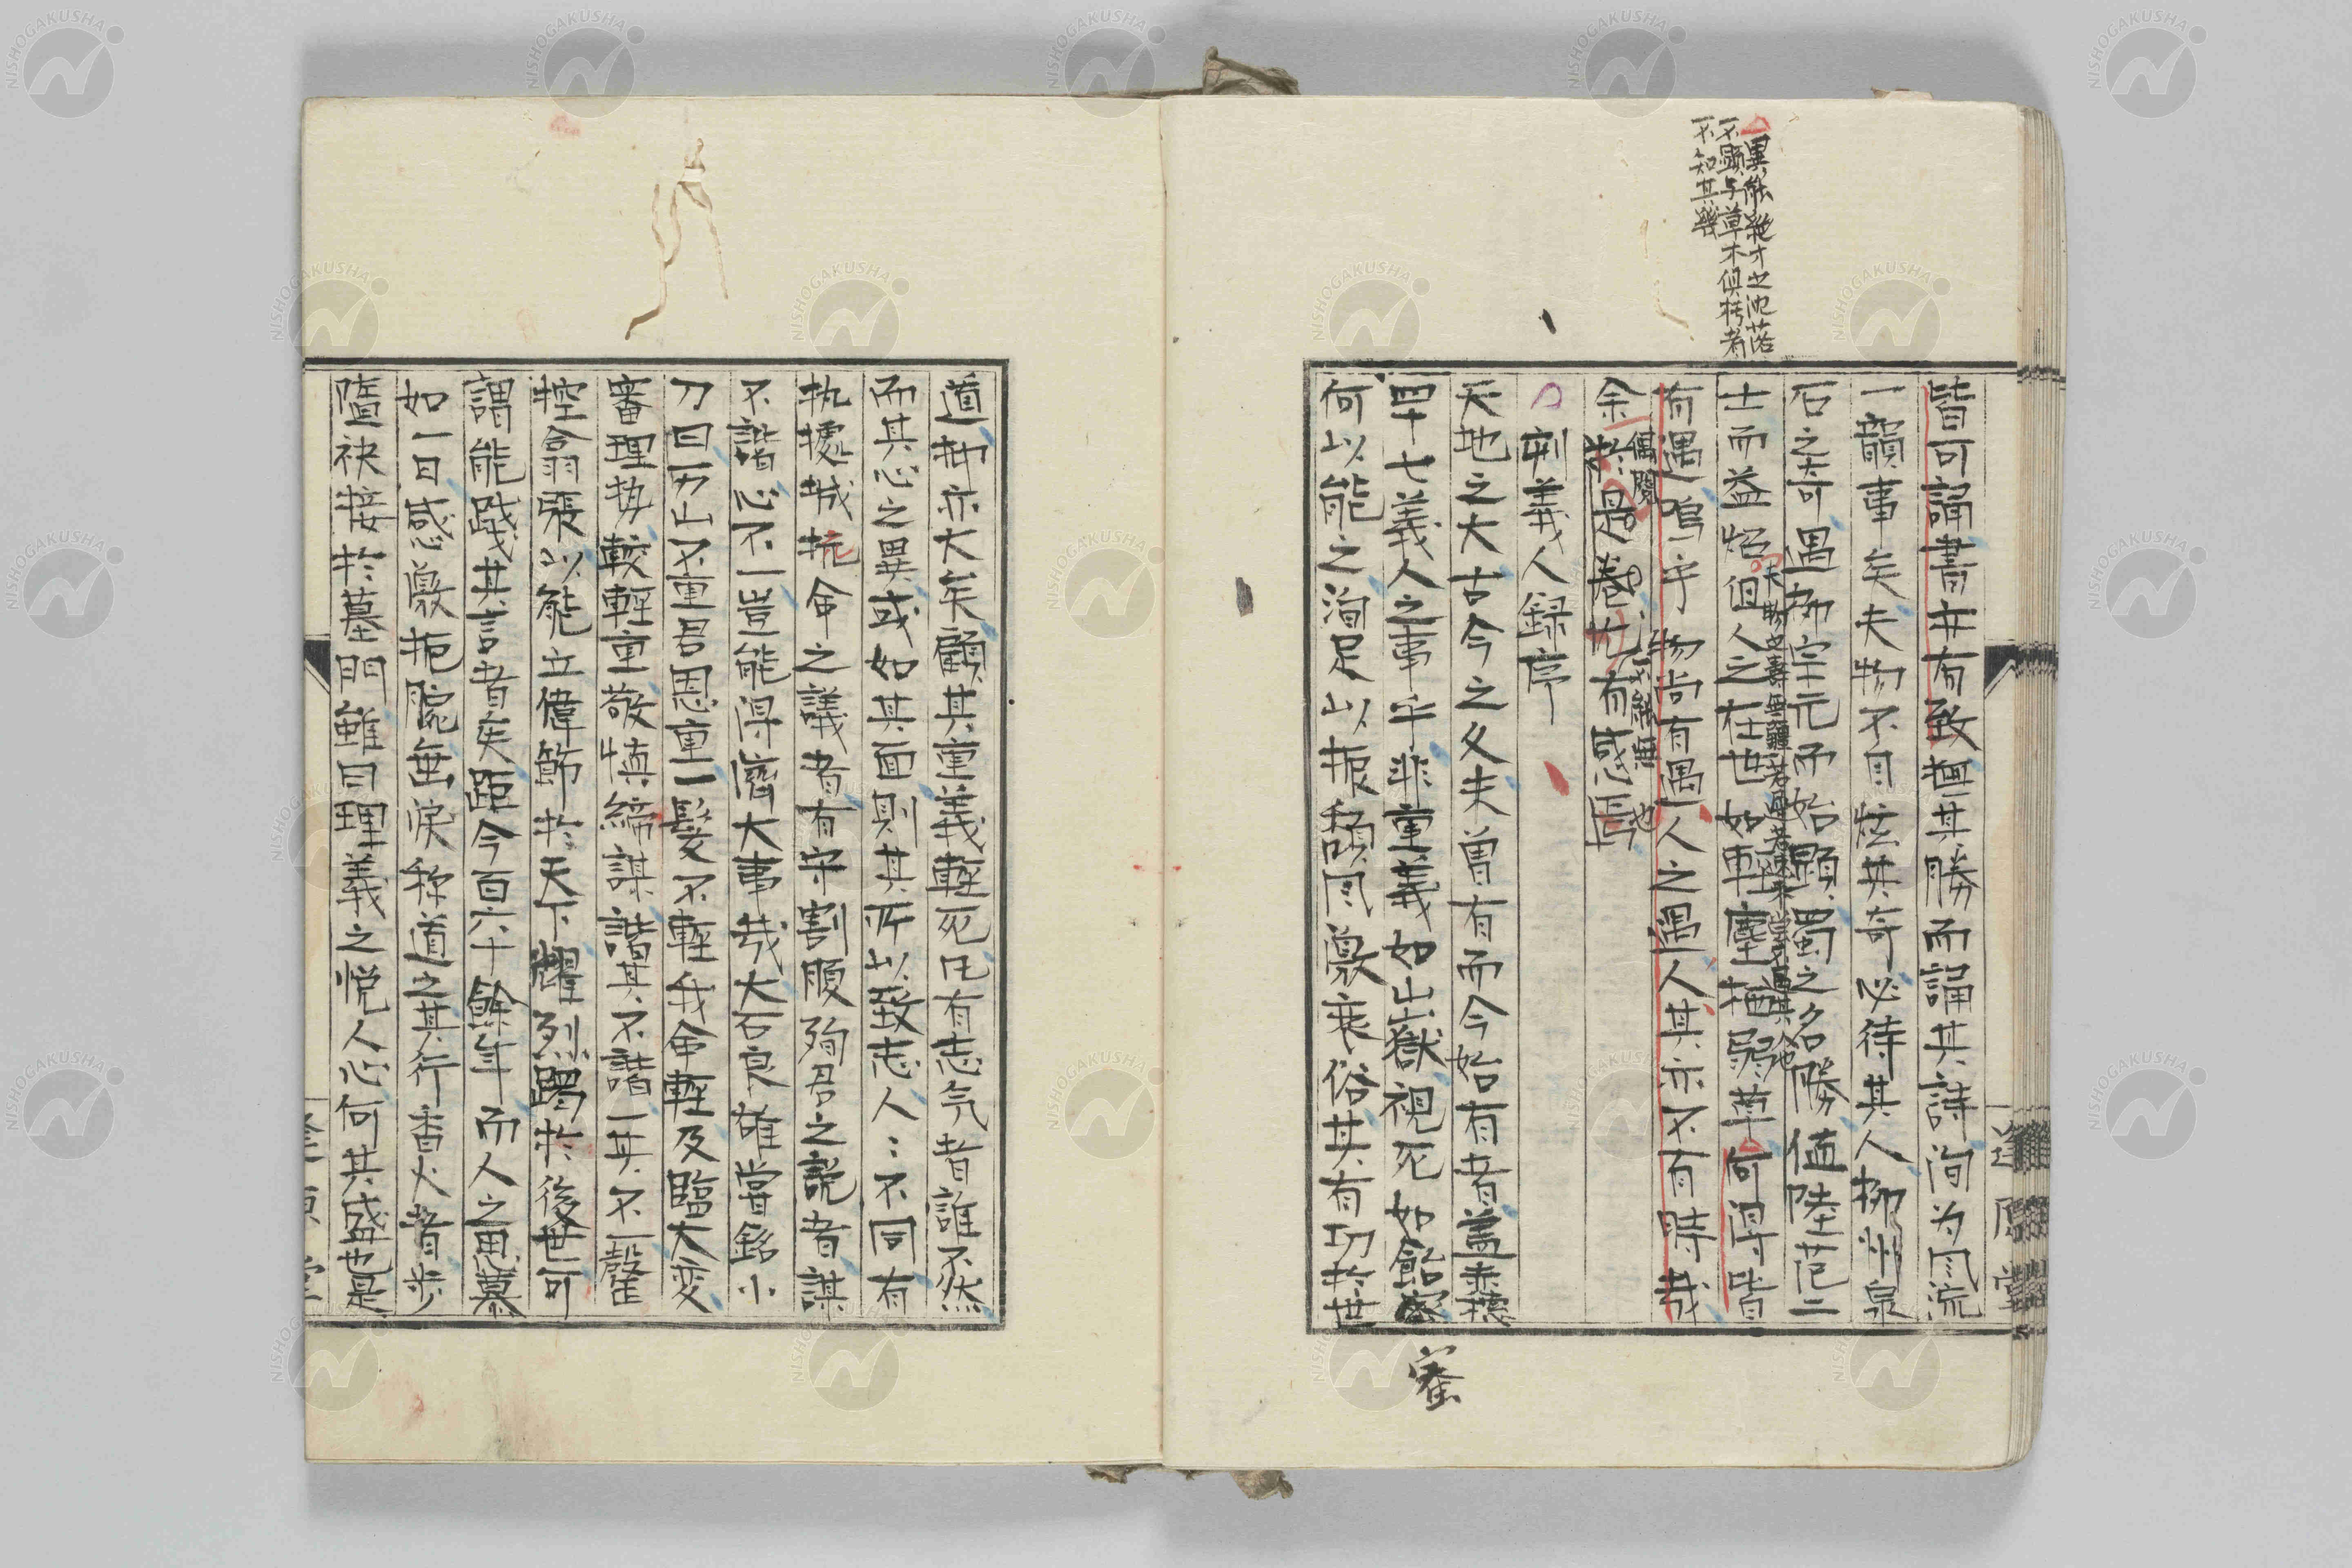 異能絶才之沈落
不顕与草木倶朽者
不知其幾
皆可誦書亦有致狥其勝而誦其詩洵为风流
一韻事矣夫物不自炫其奇必待其人柳州泉
石之奇遇柳宗元而始顕蜀之名勝値陸范二
士而益焰但人之在世如軽塵栖弱草何得皆
有遇嗚乎物尚有遇人之遇人其亦不有時哉
余於是巻尤有感焉
偶閲
刻義人録序
天地之大古今之久夫曽有而今始有者蓋赤穂
四十七義人之事乎非重義如山嶽視死如飴蜜
何以能之洵足以振頽风激衰俗其有功於世
蜜
道抑亦大矣顧其重義軽死凡有志気者誰不然
而其心之異或如其面則其所以致志人〻不同有
執據城抗命之議者有守割腹殉君之説者謀
不諧心不一豈能得濟大事哉大石良雄嘗銘小
刀曰万山不重君恩重一髪不軽我命軽及臨大变
審理埶較軽重敬慎締謀諧其不諧一其不一罄
控翕張以能立偉節於天下耀烈躅於後世可
謂能践其言者矣距今百六十餘年而人之思慕
如一日感激扼腕垂涙称道之其行香火者步
隨袂接於墓門雖曰理義之悦人心何其盛也是
逢原堂